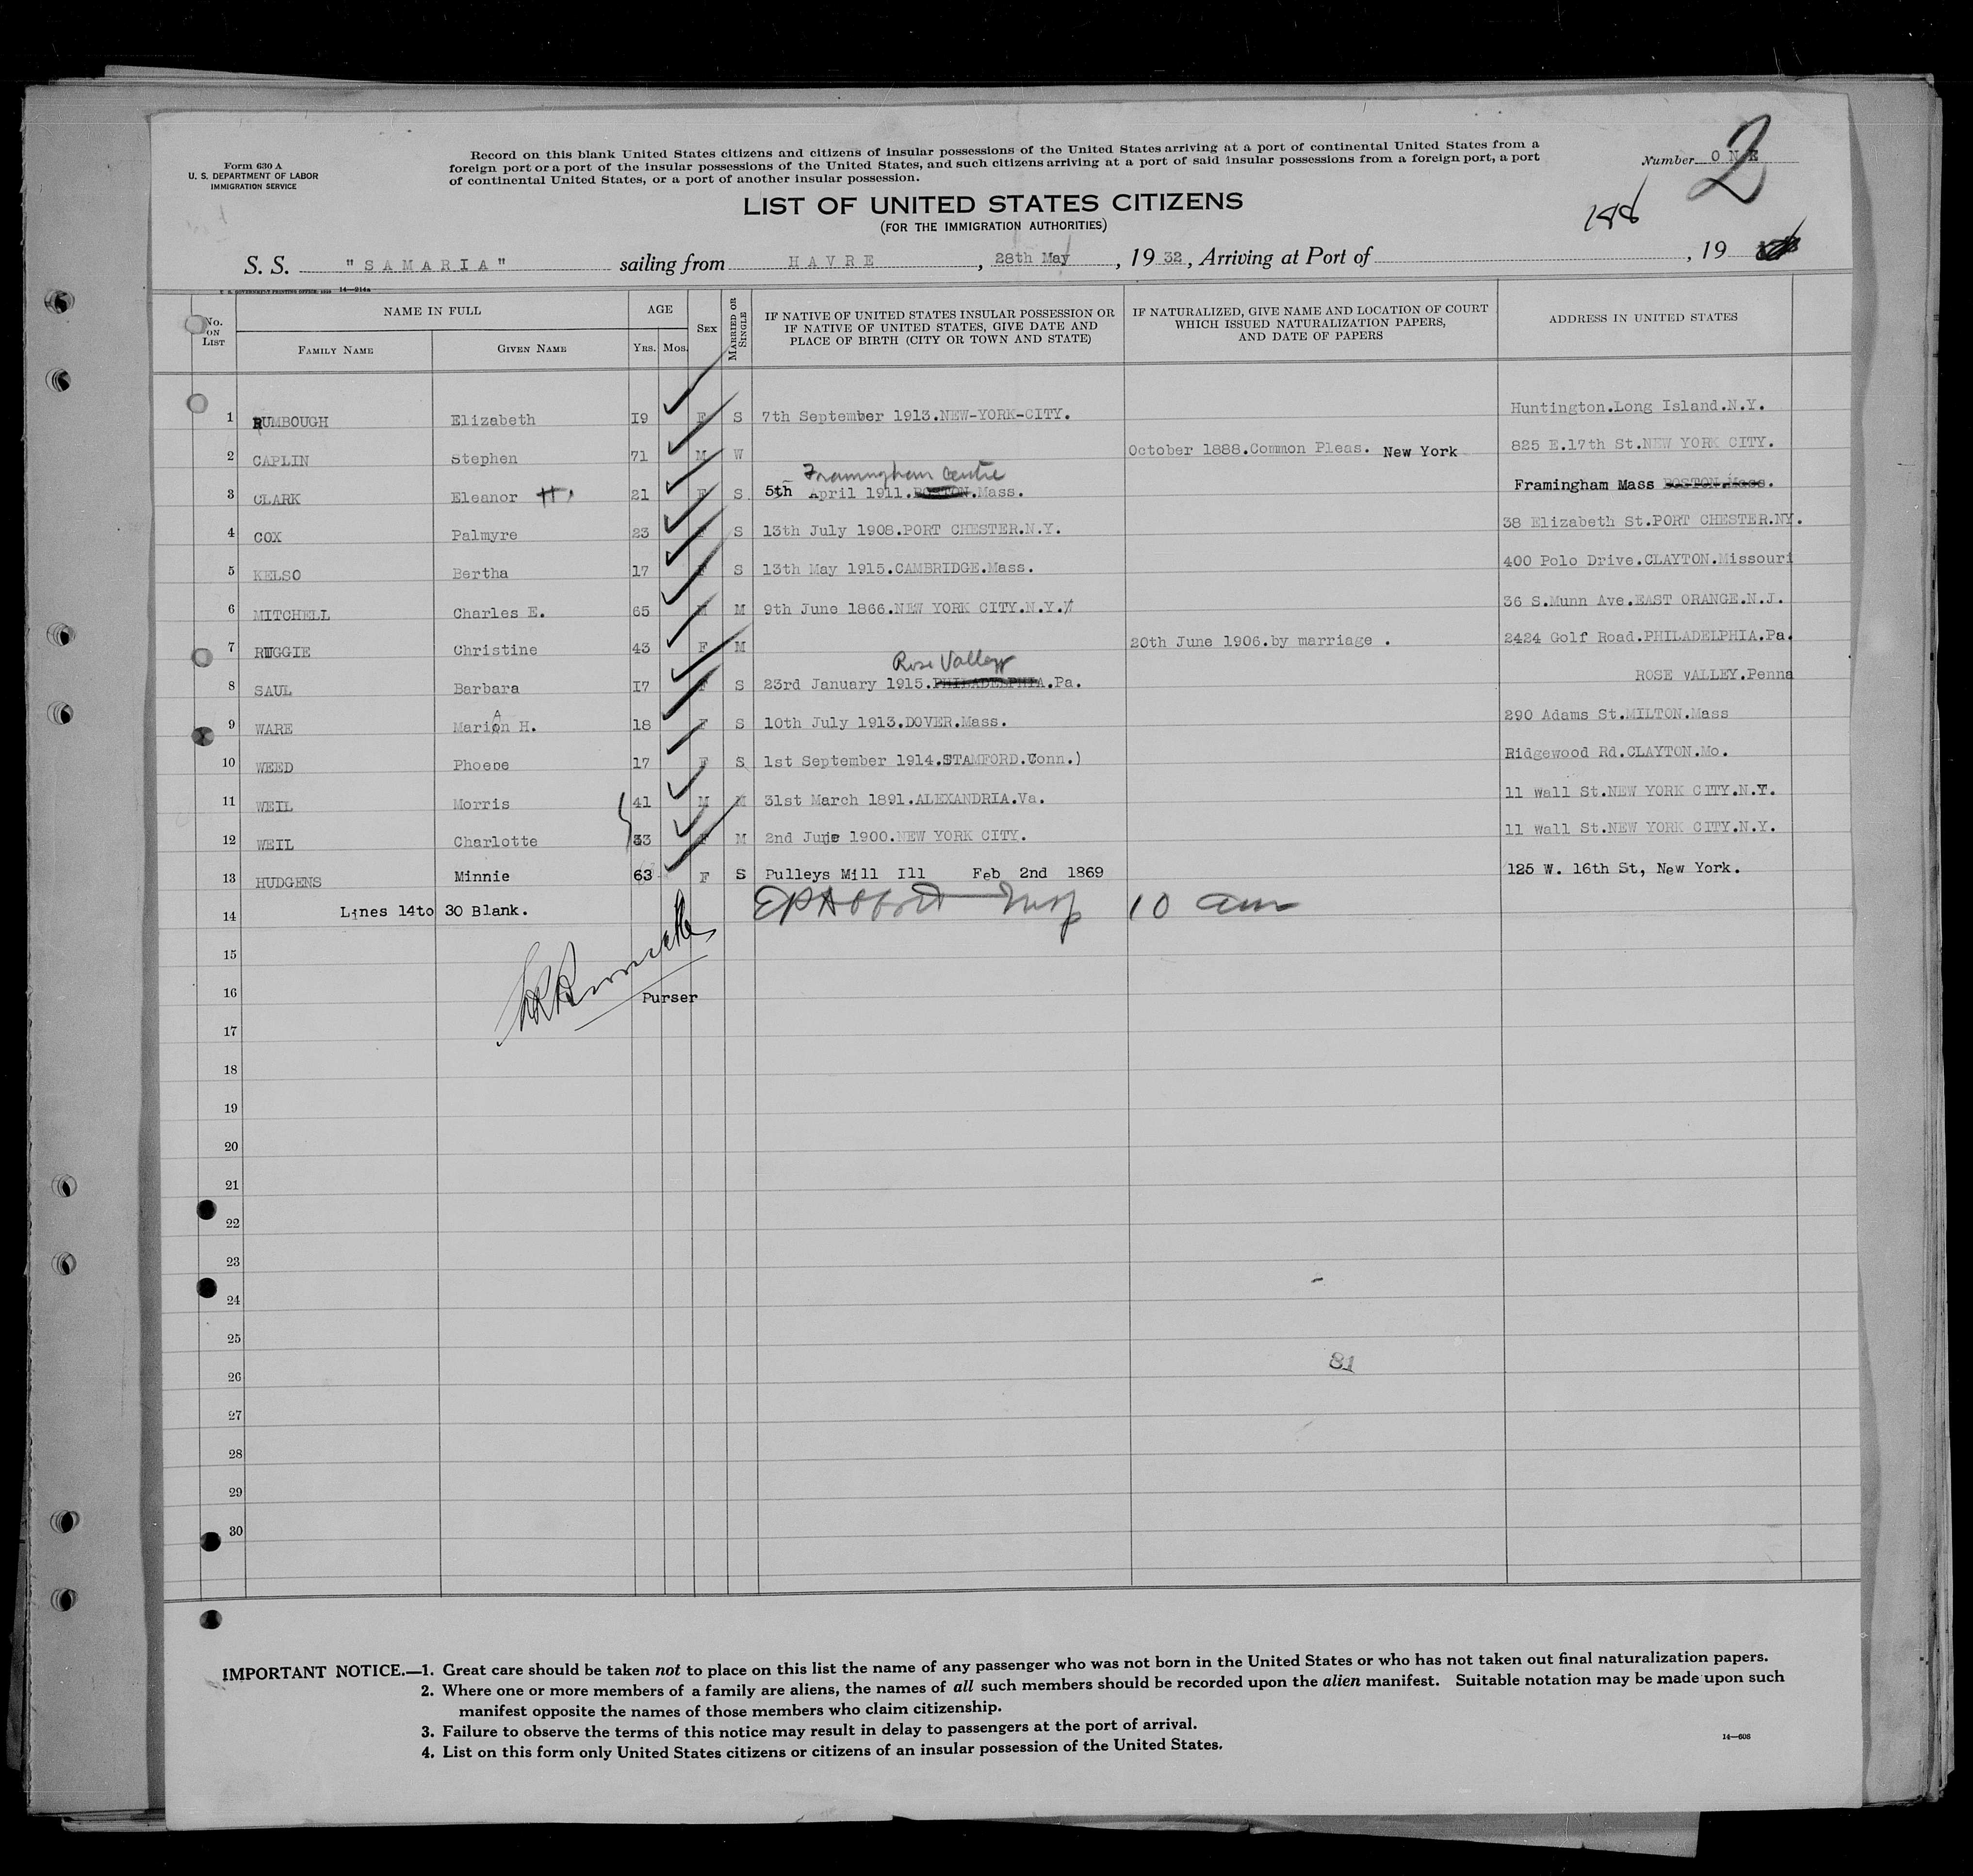 Form 630 A
U. S. DEPARTMENT OF LABOR
IMMIGRATION SERVICE
Record on this blank United States citizens and citizens of insular possessions of the United States arriving at a port of continental United States from a
foreign port or a port of the insular possessions of the United States, and such citizens arriving at a port of said insular possessions from a foreign port, a port
of continental United States, or a port of another insular possession.
Number ONE
2
LIST OF UNITED STATES CITIZENS
(FOR THE IMMIGRATION AUTHORITIES)
S. S. "SAMARIA" sailing from HAVRE, 28th May, 1932, Arriving at Port of , 19
U. S. GOVERNMENT PRINTING OFFICE: 14—214a
No. ON LIST
NAME IN FULL
FAMILY NAME
GIVEN NAME
AGE
YRS. MOS.
SEX
MARRIED OR SINGLE
IF NATIVE OF UNITED STATES INSULAR POSSESSION OR
IF NATIVE OF UNITED STATES, GIVE DATE AND
PLACE OF BIRTH (CITY OR TOWN AND STATE)
IF NATURALIZED, GIVE NAME AND LOCATION OF COURT
WHICH ISSUED NATURALIZATION PAPERS,
AND DATE OF PAPERS
ADDRESS IN UNITED STATES
1 RUMBOUGH Elizabeth I9 F S 7th September 1913.NEW-YORK-CITY. Huntington.Long Island.N.Y.
2 CAPLIN Stephen 71 M W October 1888.Common Pleas. New York 825 E.17th St.NEW YORK CITY.
Framingham Centre
3 CLARK Eleanor H. 21 F S 5th April 1911.BOSTON.Mass. Framingham Mass BOSTON.Mass.
4 COX Palmyre 23 F S 13th July 1908.PORT CHESTER.N.Y. 38 Elizabeth St.PORT CHESTER.NY.
5 KELSO Bertha 17 F S 13th May 1915.CAMBRIDGE.Mass. 400 Polo Drive.CLAYTON.Missouri
6 MITCHELL Charles E. 65 M M 9th June 1866.NEW YORK CITY.N.Y. 36 S.Munn Ave.EAST ORANGE.N.J.
7 RUGGIE Christine 43 F M 20th June 1906.by marriage . 2424 Golf Road.PHILADELPHIA.Pa.
Rose Valley
8 SAUL Barbara I7 F S 23rd January 1915.PHILADELPHIA.Pa. ROSE VALLEY.Penna
9 WARE Marion H. 18 F S 10th July 1913.DOVER.Mass. 290 Adams St.MILTON.Mass
10 WEED Phoebe 17 F S 1st September 1914.STAMFORD.Conn.) Ridgewood Rd.CLAYTON.Mo.
11 WEIL Morris 41 M M 31st March 1891.ALEXANDRIA.Va. 11 Wall St.NEW YORK CITY.N.Y.
12 WEIL Charlotte 33 F M 2nd June 1900.NEW YORK CITY. 11 Wall St.NEW YORK CITY.N.Y.
13 HUDGENS Minnie 63 F S Pulleys Mill Ill Feb 2nd 1869 125 W. 16th St, New York.
14 Lines 14to 30 Blank. 10 am
15
16 Purser
17
18
19
20
21
22
23
24
25
81
26
27
28
29
30
IMPORTANT NOTICE.—1. Great care should be taken not to place on this list the name of any passenger who was not born in the United States or who has not taken out final naturalization papers.
2. Where one or more members of a family are aliens, the names of all such members should be recorded upon the alien manifest. Suitable notation may be made upon such
manifest opposite the names of those members who claim citizenship.
3. Failure to observe the terms of this notice may result in delay to passengers at the port of arrival.
4. List on this form only United States citizens or citizens of an insular possession of the United States.
14—608